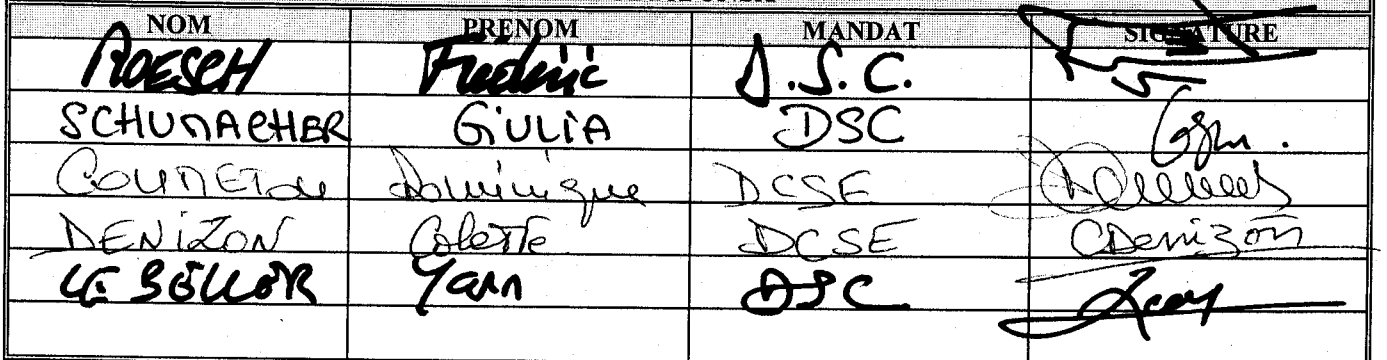 NOM PRENOM MANDAT SIGNATURE
ROESCH Frédéric D.S.C.
SCHUMACHER GIULIA DSC
Dominique DCSE
DENIZON Colette DCSE CDenizon
Yann DSC